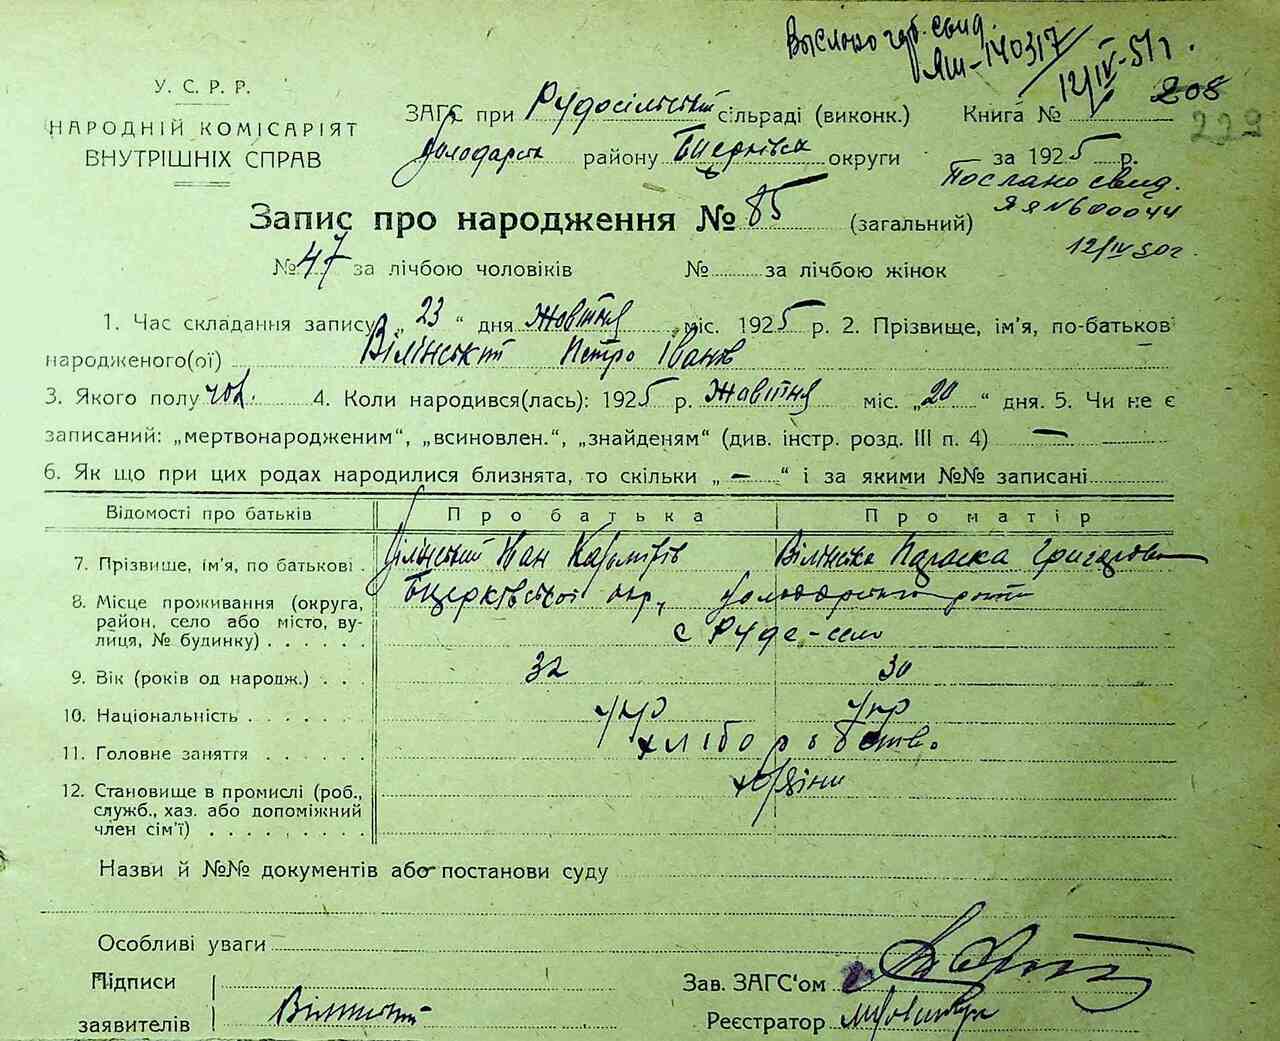 Выслано свид.
ЯШ-140317
12/IV-51 г.
208
229
У. С. Р. Р.
НАРОДНІЙ КОМІСАРІЯТ
ВНУТРІШНІХ СПРАВ
ЗАГС при Рудосільській сільраді (виконк.) Книга №
Володарськ району Бцерківськ округи за 1925 р.
Послано свид.
ЯЯ №600044
12/IV 50г.
Запис про народження № 85 (загальний)
№ 47 за лічбою чоловіків № за лічбою жінок
1. Час складання запису „ 23 “ дня жовтня міс. 1925 р. 2. Прізвище, ім'я, по-батькові
народженого(ої) Вілінський Петро Іванов
3. Якого полу чол. 4. Коли народився(лась): 1925 р. жовтня міс. „ 20 “ дня. 5. Чи не є
записаний: „мертвонародженим“, „всиновлен.“, „знайденям“ (див. інстр. розд. III п. 4) —
6. Як що при цих родах народилися близнята, то скільки „ — “ і за якими №№ записані
Відомості про батьків Про батька Про матір
7. Прізвище, ім'я, по батькові Вілінський Іван Вілінська Параска Григорова
8. Місце проживання (округа, Бцерківської окр, Володарського
район, село або місто, ву-
лиця, № будинку) с Руде-село
9. Вік (років од народж.) 32 30
10. Національність укр укр
11. Головне заняття хліборобство
12. Становище в промислі (роб.,
служб., хаз. або допоміжний
член сім'ї)
Назви й №№ документів або постанови суду
Особливі уваги
Підписи
заявителів Вілінський
Зав. ЗАГС'ом
Реєстратор